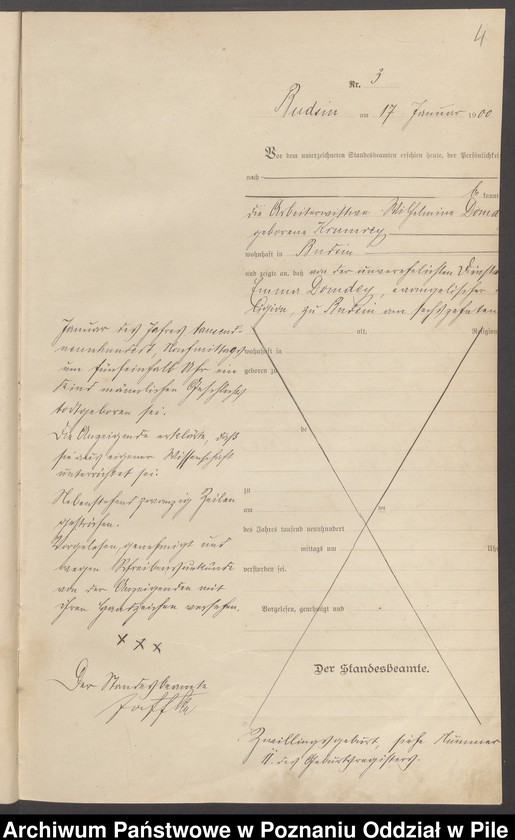 4
Nr. 3
Rudsin am 17 Januar 1900
Vor dem unterzeichneten Standesbeamten erschien heute, der Persönlichkeit
nach
kannt
die Arbeiterwittwe Wilhelmine Domd
geborene Krumrey
wohnhaft in Rudsin
und zeigte an, daß von der unverehelichten Dienst
Emma Domdey, evangelischer
Religion, zu Rudsin am sechszehnten
Januar des Jahres tausend
neunhundert, Nachmittags
um fünfeinhalb Uhr ein
Kind männlichen Geschlechts
todtgeboren sei.
Die Anzeigende erklärte, daß
sie aus eigener Wissenschaft
unterrichtet sei.
Nebenstehend zwanzig Zeilen
gestrichen.
Vorgelesen, genehmigt und
wegen Schreibensunkunde
von der Anzeigenden mit
ihren Handzeichen versehen.
x x x
Der Standesbeamte
alt, Religion
wohnhaft in
geboren zu
de
zu
am ten
des Jahres tausend neunhundert
mittags um Uhr
verstorben sei.
Vorgelesen, genehmigt und
Der Standesbeamte.
Zwillingsgeburt, siehe Nummer
11 des Geburtsregisters.
Archiwum Państwowe w Poznaniu Oddział w Pile